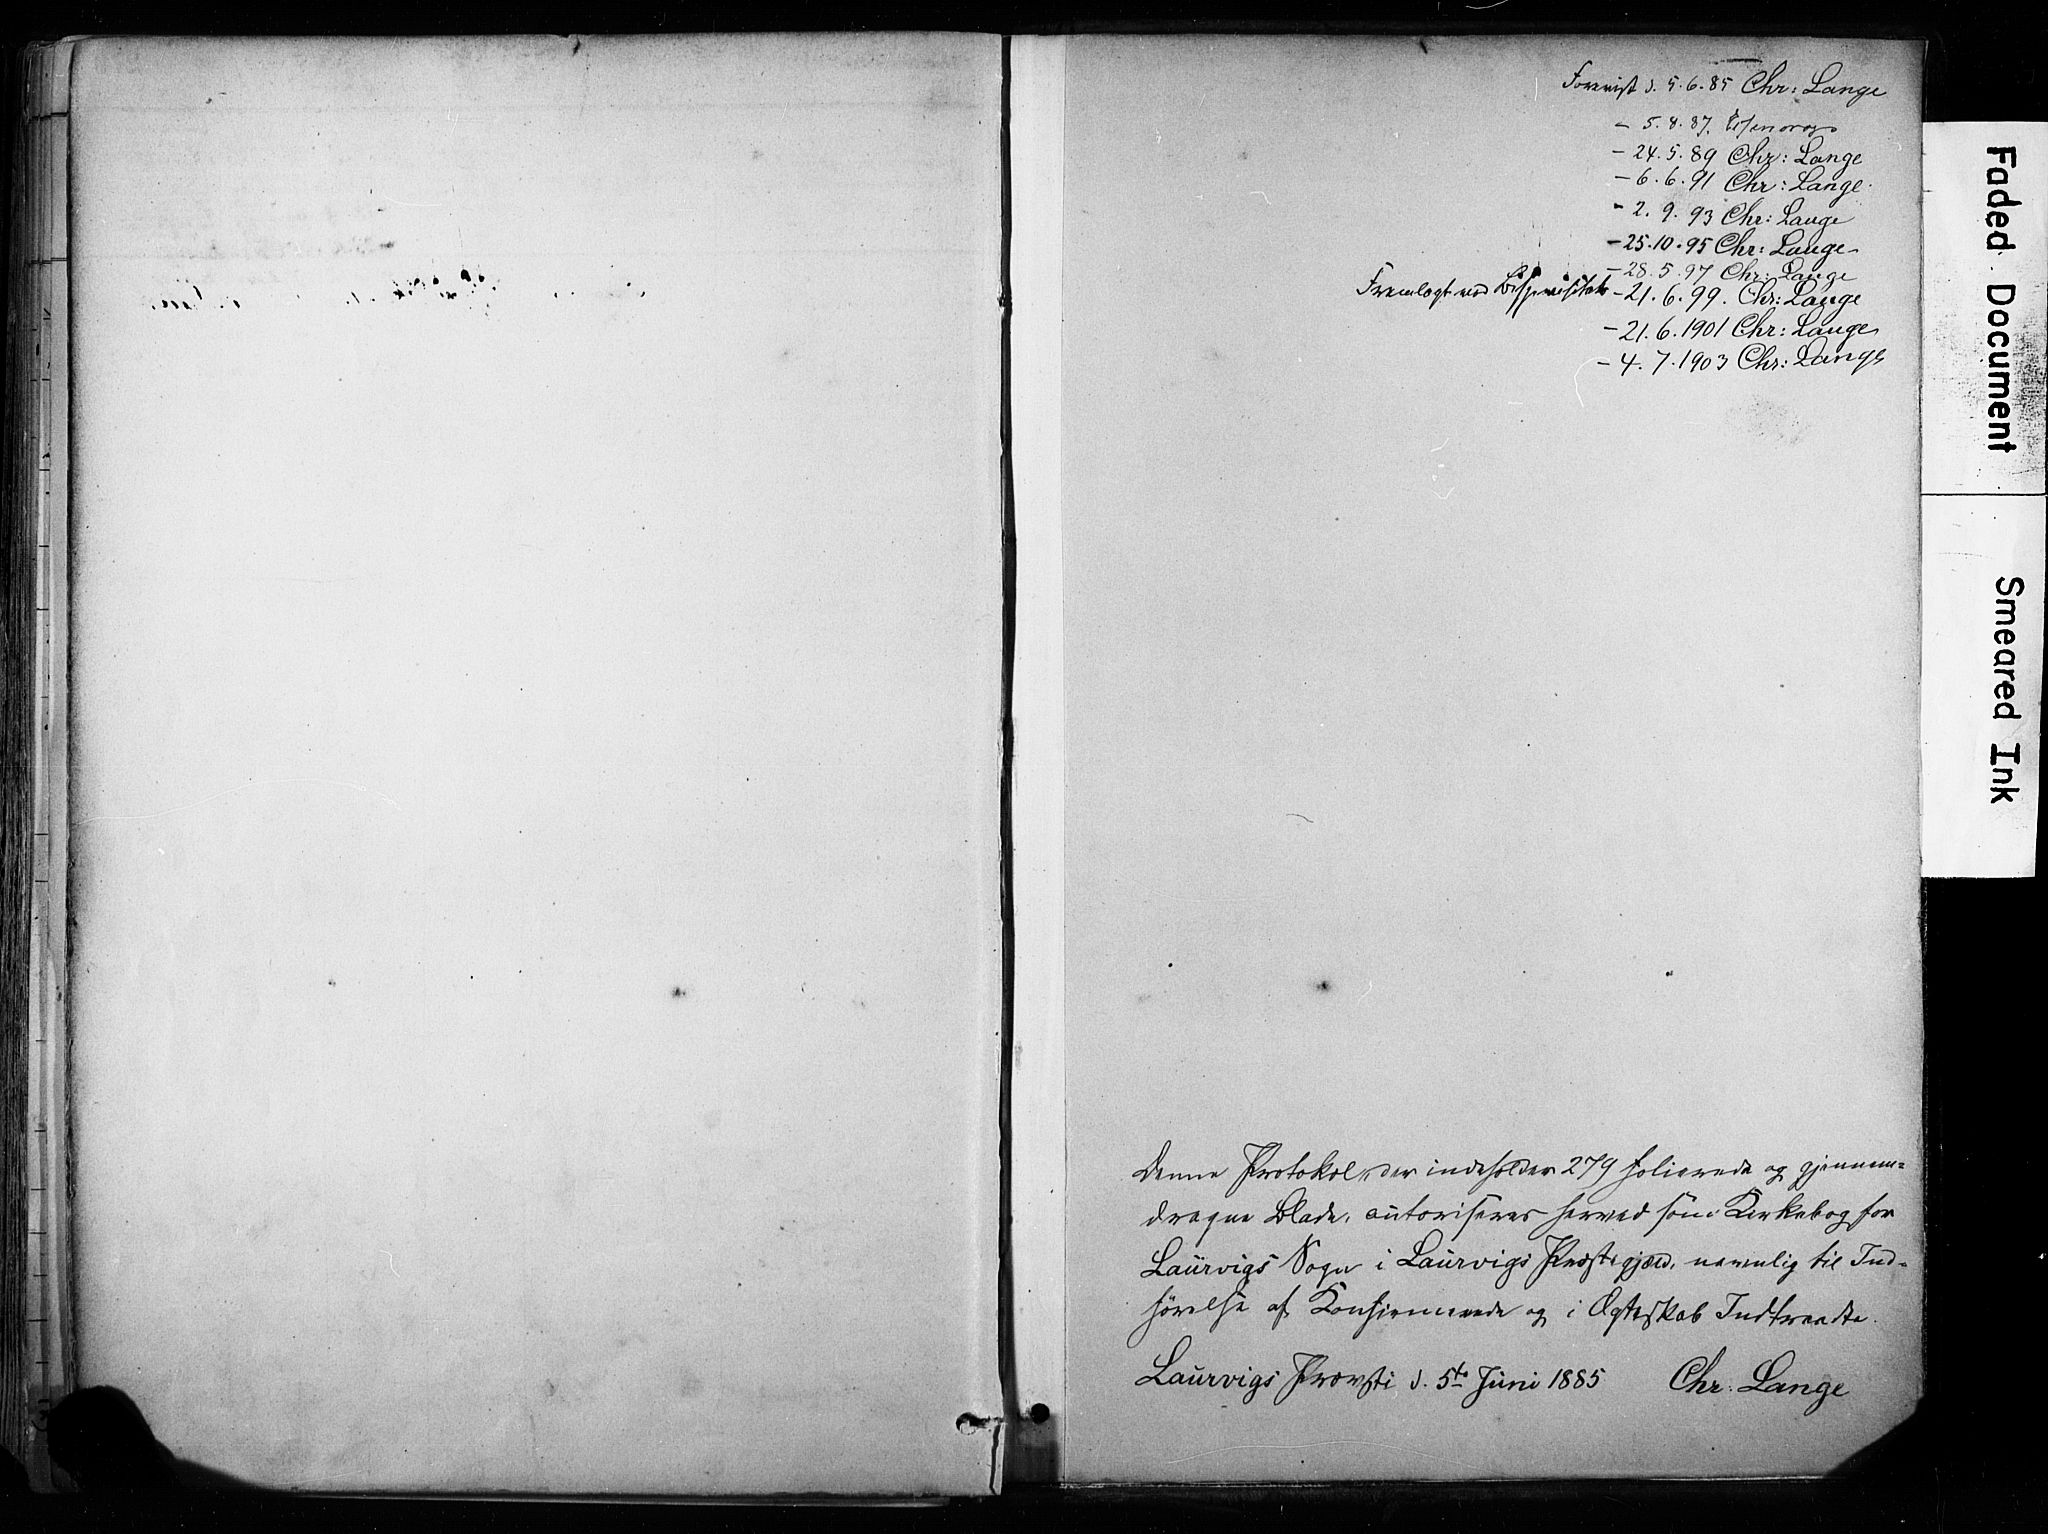 Forevist d. 5.6.85 Chr: Lange
- 5.8.87.
- 24.5.89 Chr: Lange
- 6.6.91 Chr: Lange.
- 2.9.93 Chr: Lange
- 25.10.95 Chr: Lange
- 28.5.97 Chr: Lange
Fremlagt ved Bispevisitats - 21.6.99. Chr: Lange
- 21.6.1901 Chr: Lange
- 4.7.1903 Chr: Lange
Denne Protokol, der indeholder 279 folierede og gjennem=
dragne Blade, autoriseres herved som Kirkebog for
Laurvigs Sogn i Laurvigs Præstegjæld, navnlig til Ind=
førelse af Konfirmerede og i Ægteskab Indtraadte.
Laurvigs Provsti d. 5te Juni 1885 Chr: Lange
Faded Document
Smeared Ink